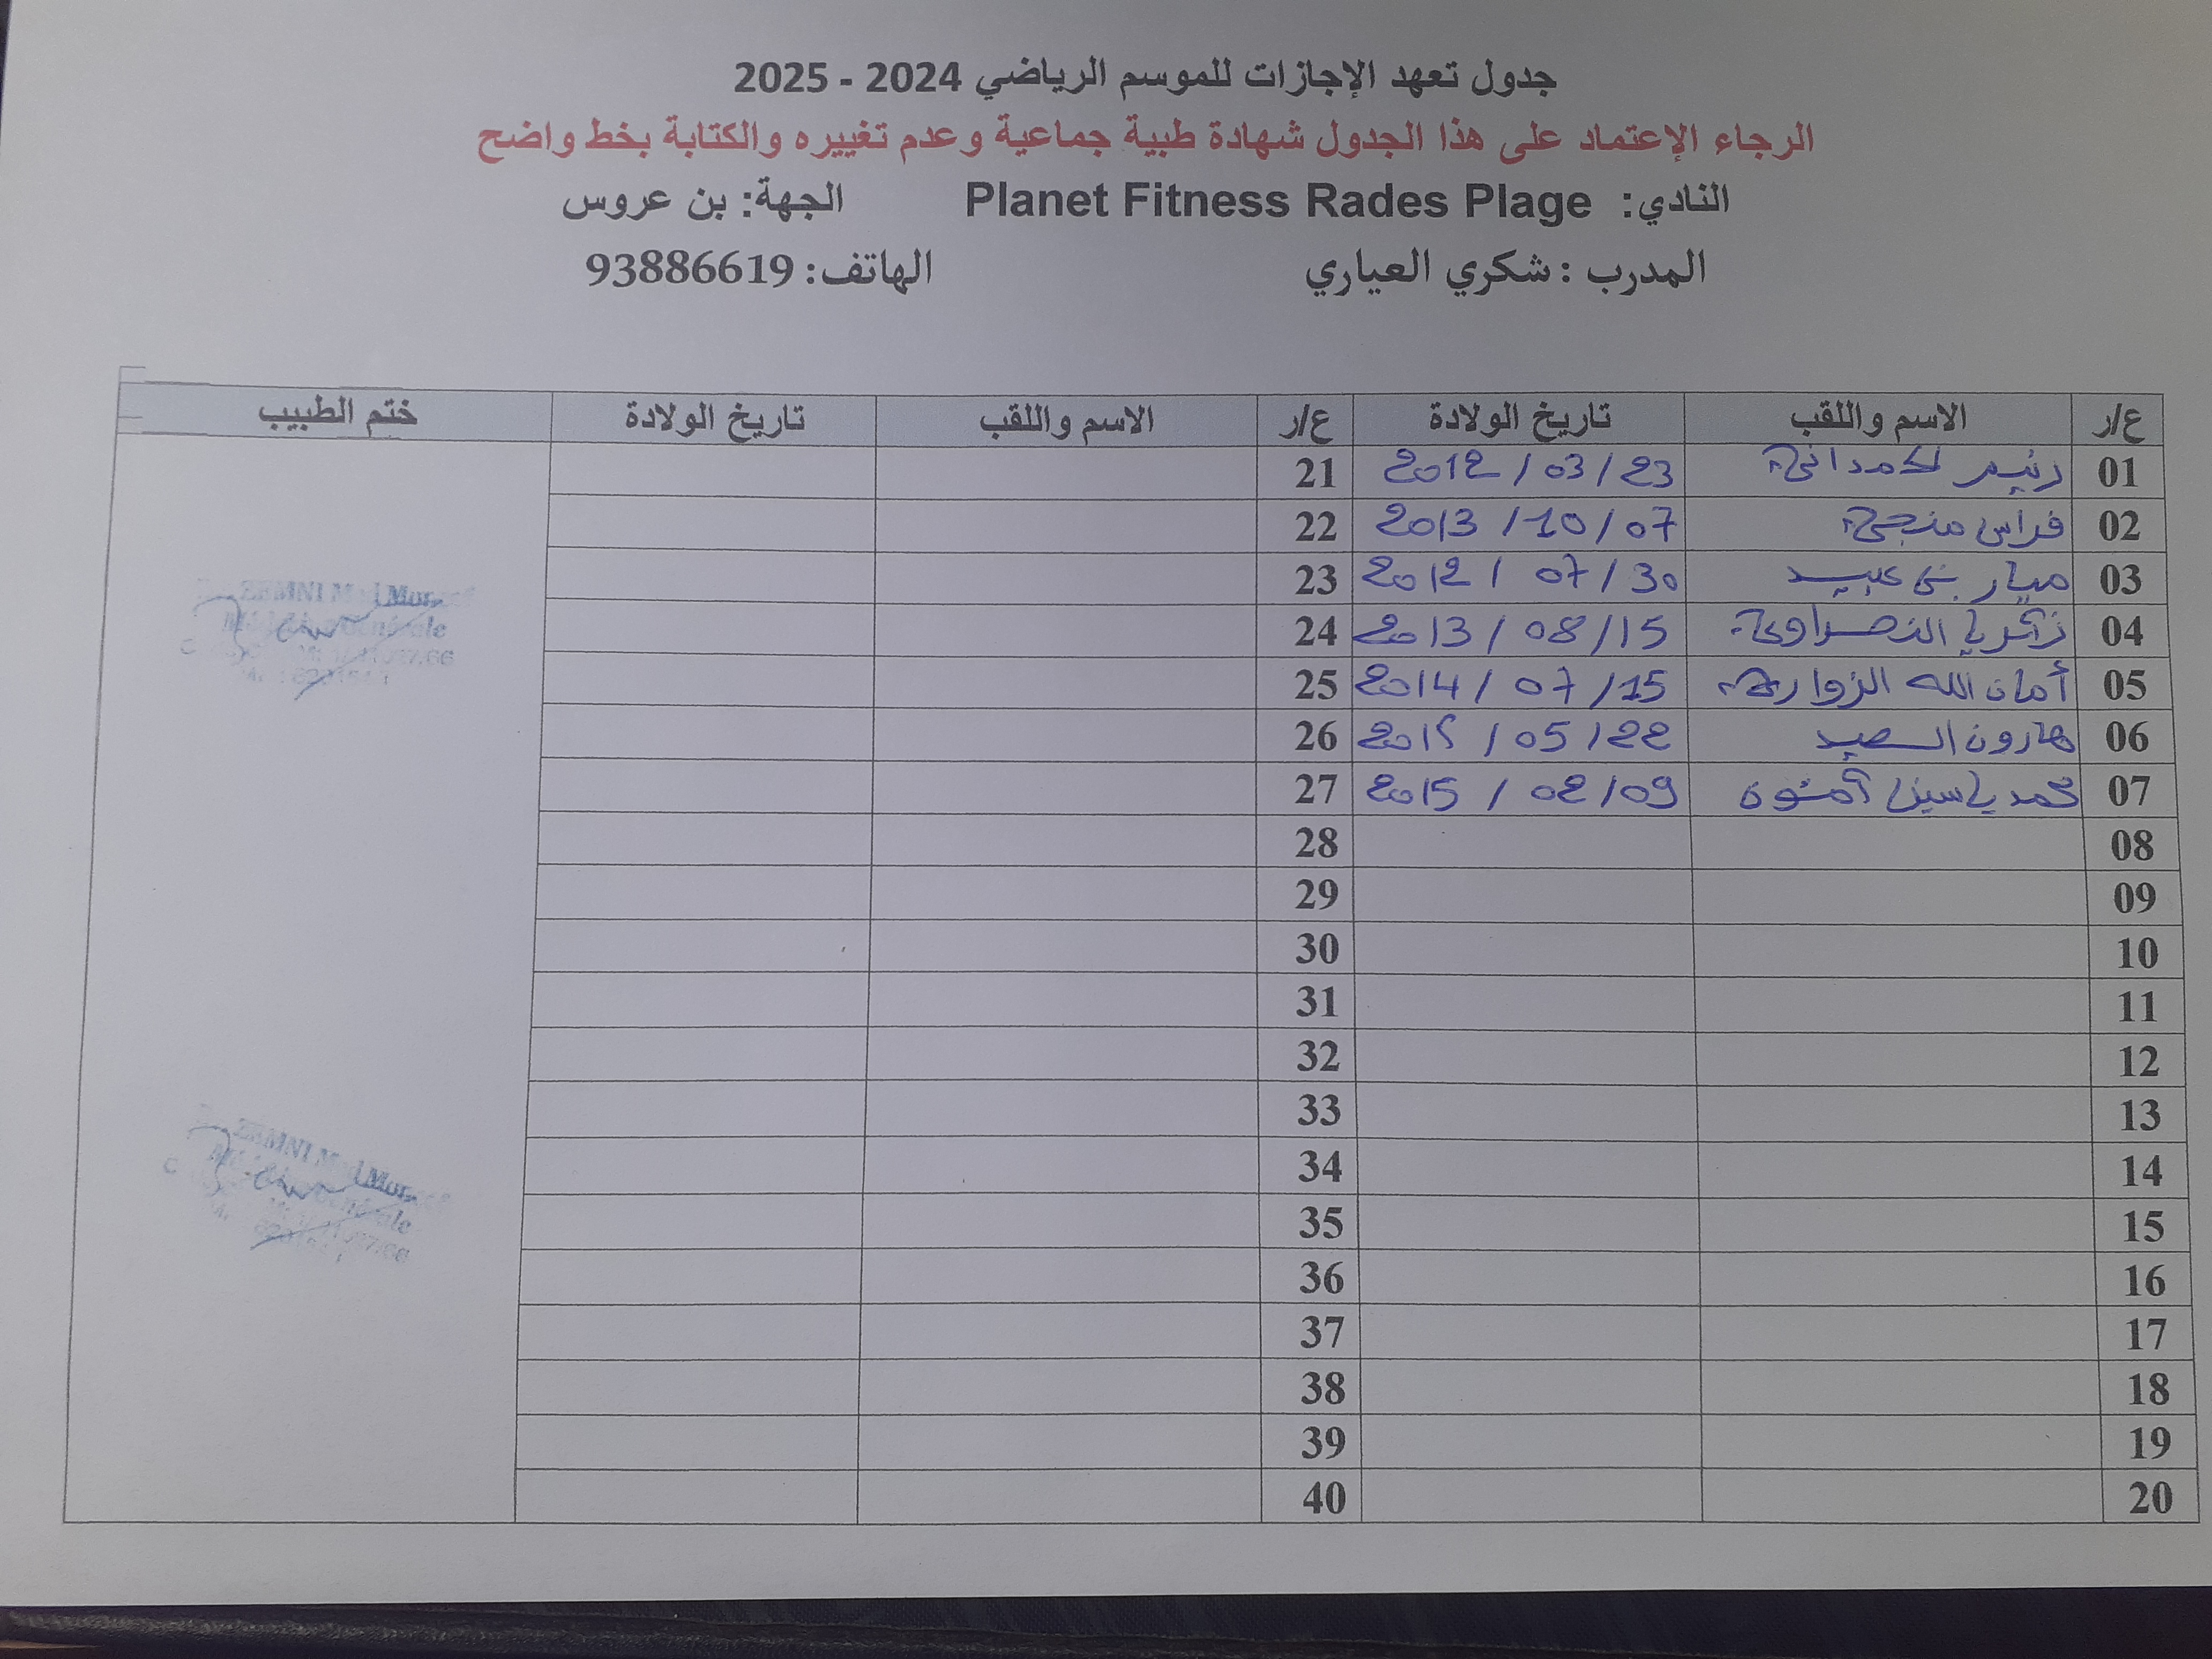 جدول تعهد الإجازات للموسم الرياضي 2024 - 2025
الرجاء الإعتماد على هذا الجدول شهادة طبية جماعية وعدم تغييره والكتابة بخط واضح
النادي: Planet Fitness Rades Plage الجهة: بن عروس
المدرب : شكري العياري الهاتف: 93886619
ع/ر الاسم واللقب تاريخ الولادة ع/ر الاسم واللقب تاريخ الولادة ختم الطبيب
01 2012 / 03 / 23 21
02 فراس منجي 2013 / 10 / 07 22
03 ميار بن عبيد 2012 / 07 / 30 23
04 زكريا النصراوي 2013 / 08 / 15 24
05 أمان الله الزواري 2014 / 07 / 15 25
06 هارون 05 / 22 26
07 محمد ياسين 2015 / 02 / 09 27
08 28
09 29
10 30
11 31
12 32
13 33
14 34
15 35
16 36
17 37
18 38
19 39
20 40
ZEMNI
ZEMNI